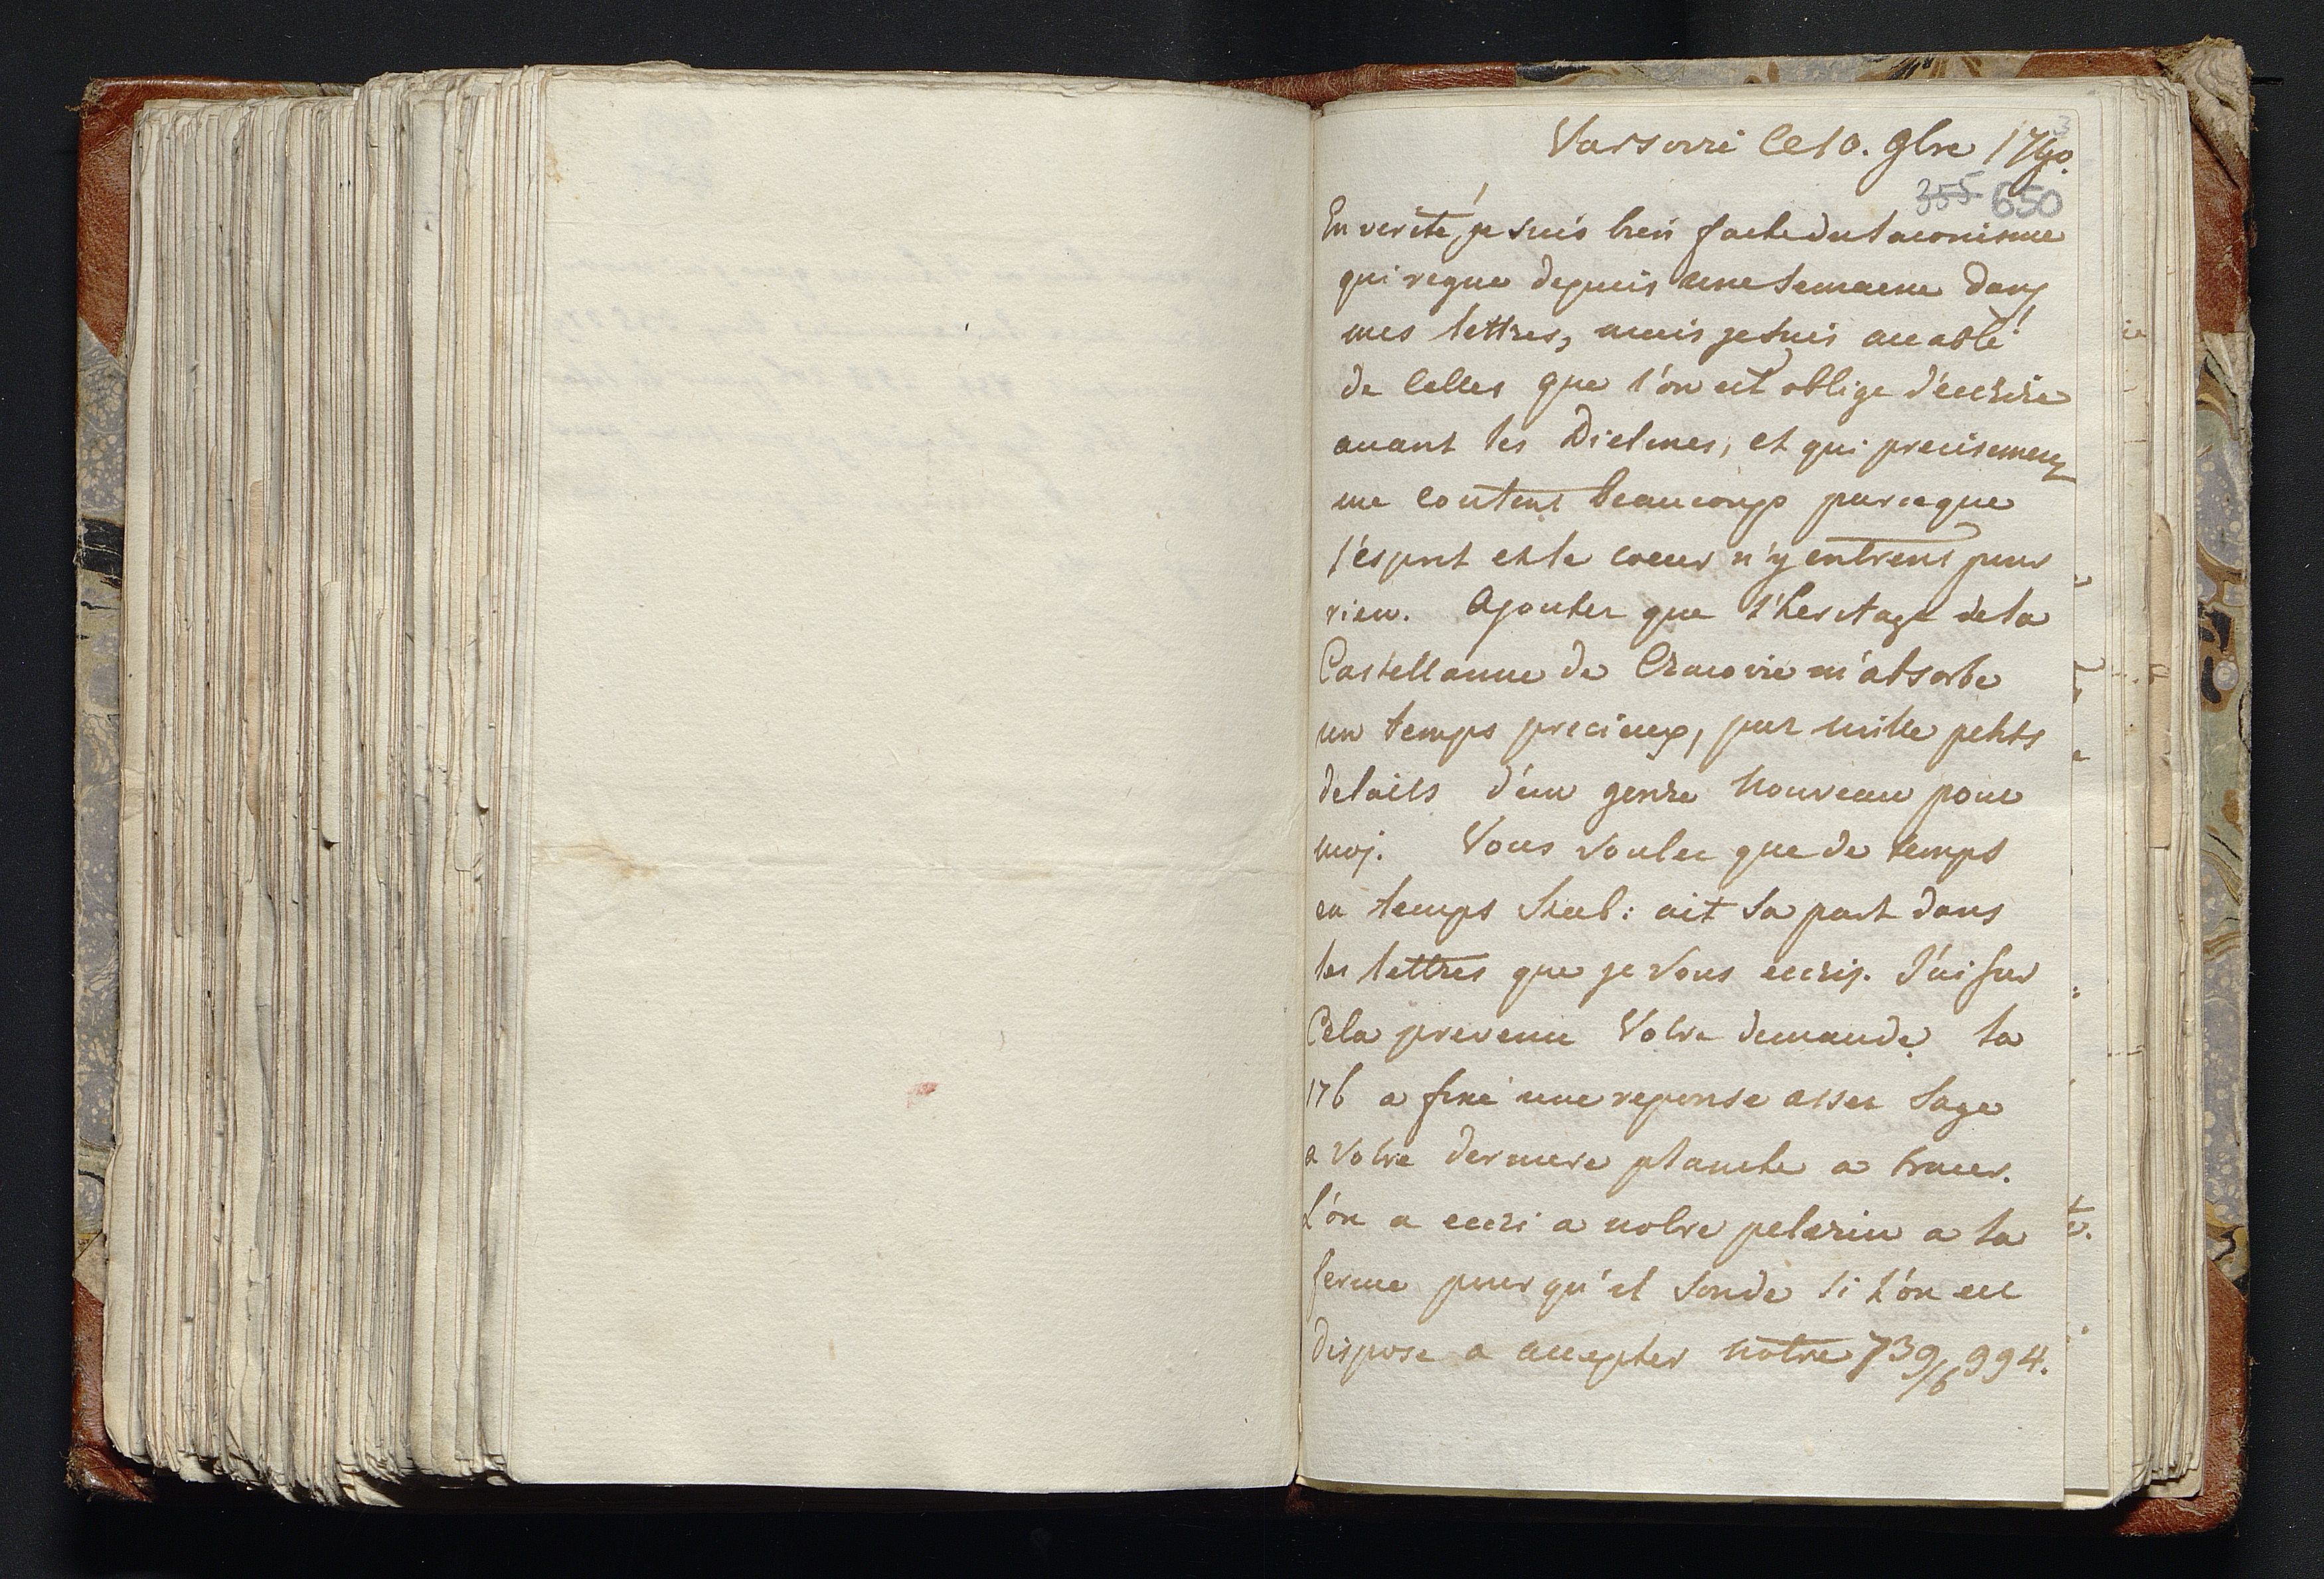 Varsovie Ce 10. 9bre 1790.
3
355 650
En verité, je suis bien faché du laconisme
qui regne depuis une Semaine dans
mes lettres, mais je suis accablé
de Celles que l'on est obligé d'eccrire
avant les Dietines, et qui precisement
me coutent beaucoup parceque
l'esprit et le coeur n'y entrent pour
rien. Ajoutez que l'heritage de la
Castellanne de Cracovie m'absorbe
un temps precieux, par mille petits
details d'un genre Nouveau pour
moj. Vous voulez que de temps
en temps ait sa part dans
les lettres que je Vous eccris. J'ai sur
Cela prevenu Votre demande. la
176 a fixé une reponse assez Sage
a Votre derniere planche a tracer.
L'on a eccri a notre pelerin a la
ferme pour qu'il Sonde si l'on est
disposé a accepter notre 739/6 994.